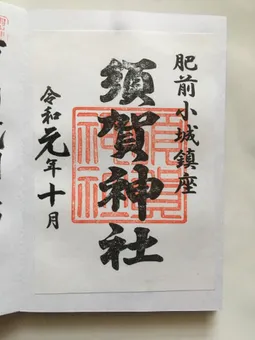 肥前小城鎮座
須賀神社
令和元年十月